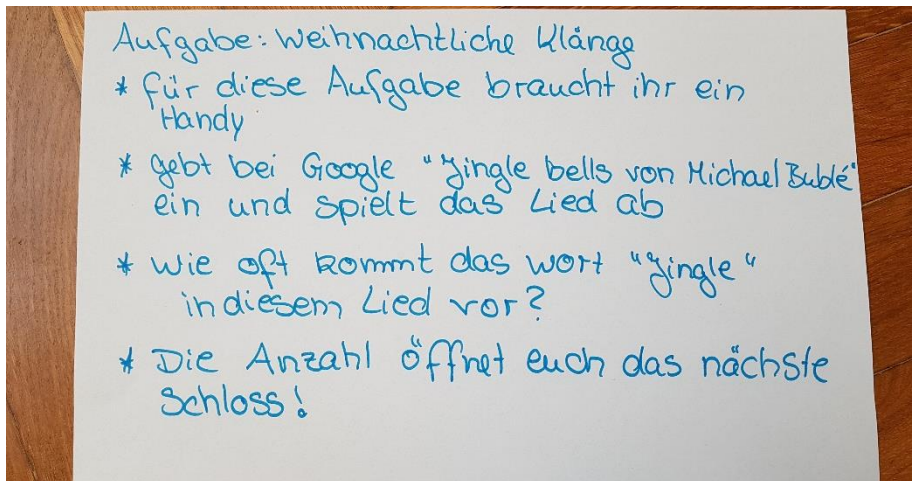 Aufgabe: Weihnachtliche Klänge
* für diese Aufgabe braucht ihr ein
Handy
* gebt bei Google "Jingle bells von Michael Bublé"
ein und spielt das Lied ab
* Wie oft kommt das Wort "Jingle"
in diesem Lied vor?
* Die Anzahl öffnet euch das nächste
Schloss!